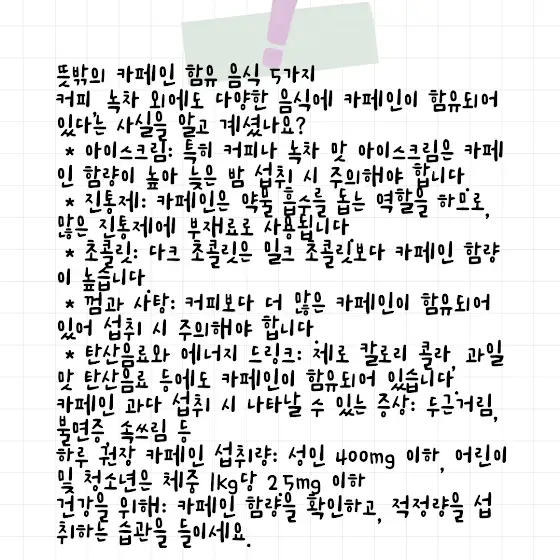 뜻밖의 카페인 함유 음식 5가지
커피 녹차 외에도 다양한 음식에 카페인이 함유되어
있다는 사실을 알고 계셨나요?
* 아이스크림: 특히 커피나 녹차 맛 아이스크림은 카페
인 함량이 높아 늦은 밤 섭취 시 주의해야 합니다
* 진통제: 카페인은 약물 흡수를 돕는 역할을 하므로,
많은 진통제에 부재료로 사용됩니다
* 초콜릿: 다크 초콜릿은 밀크 초콜릿보다 카페인 함량
이 높습니다.
* 껌과 사탕: 커피보다 더 많은 카페인이 함유되어
있어 섭취 시 주의해야 합니다
* 탄산음료와 에너지 드링크: 제로 칼로리 콜라, 과일
맛 탄산음료 등에도 카페인이 함유되어 있습니다.
카페인 과다 섭취 시 나타날 수 있는 증상: 두근거림,
불면증, 속쓰림 등
하루 권장 카페인 섭취량: 성인 400mg 이하, 어린이
및 청소년은 체중 1kg당 2.5mg 이하
건강을 위해: 카페인 함량을 확인하고, 적정량을 섭
취하는 습관을 들이세요.